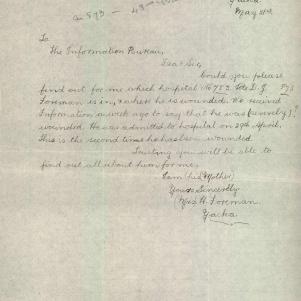 Yacka
May 21st
To
The Information Bureau,
Dear Sir,
Could you please
find out for me which hospital No 752 Pte D. J.
Foreman is in, & where he is wounded. We received
Information a week ago to say that he was [severely]?
wounded. He was admitted to hospital on 29th April.
This is the second time he has been wounded.
Trusting you will be able to
find out all about him for me.
I am (his Mother)
Yours Sincerely
Mrs H. Foreman.
Yacka